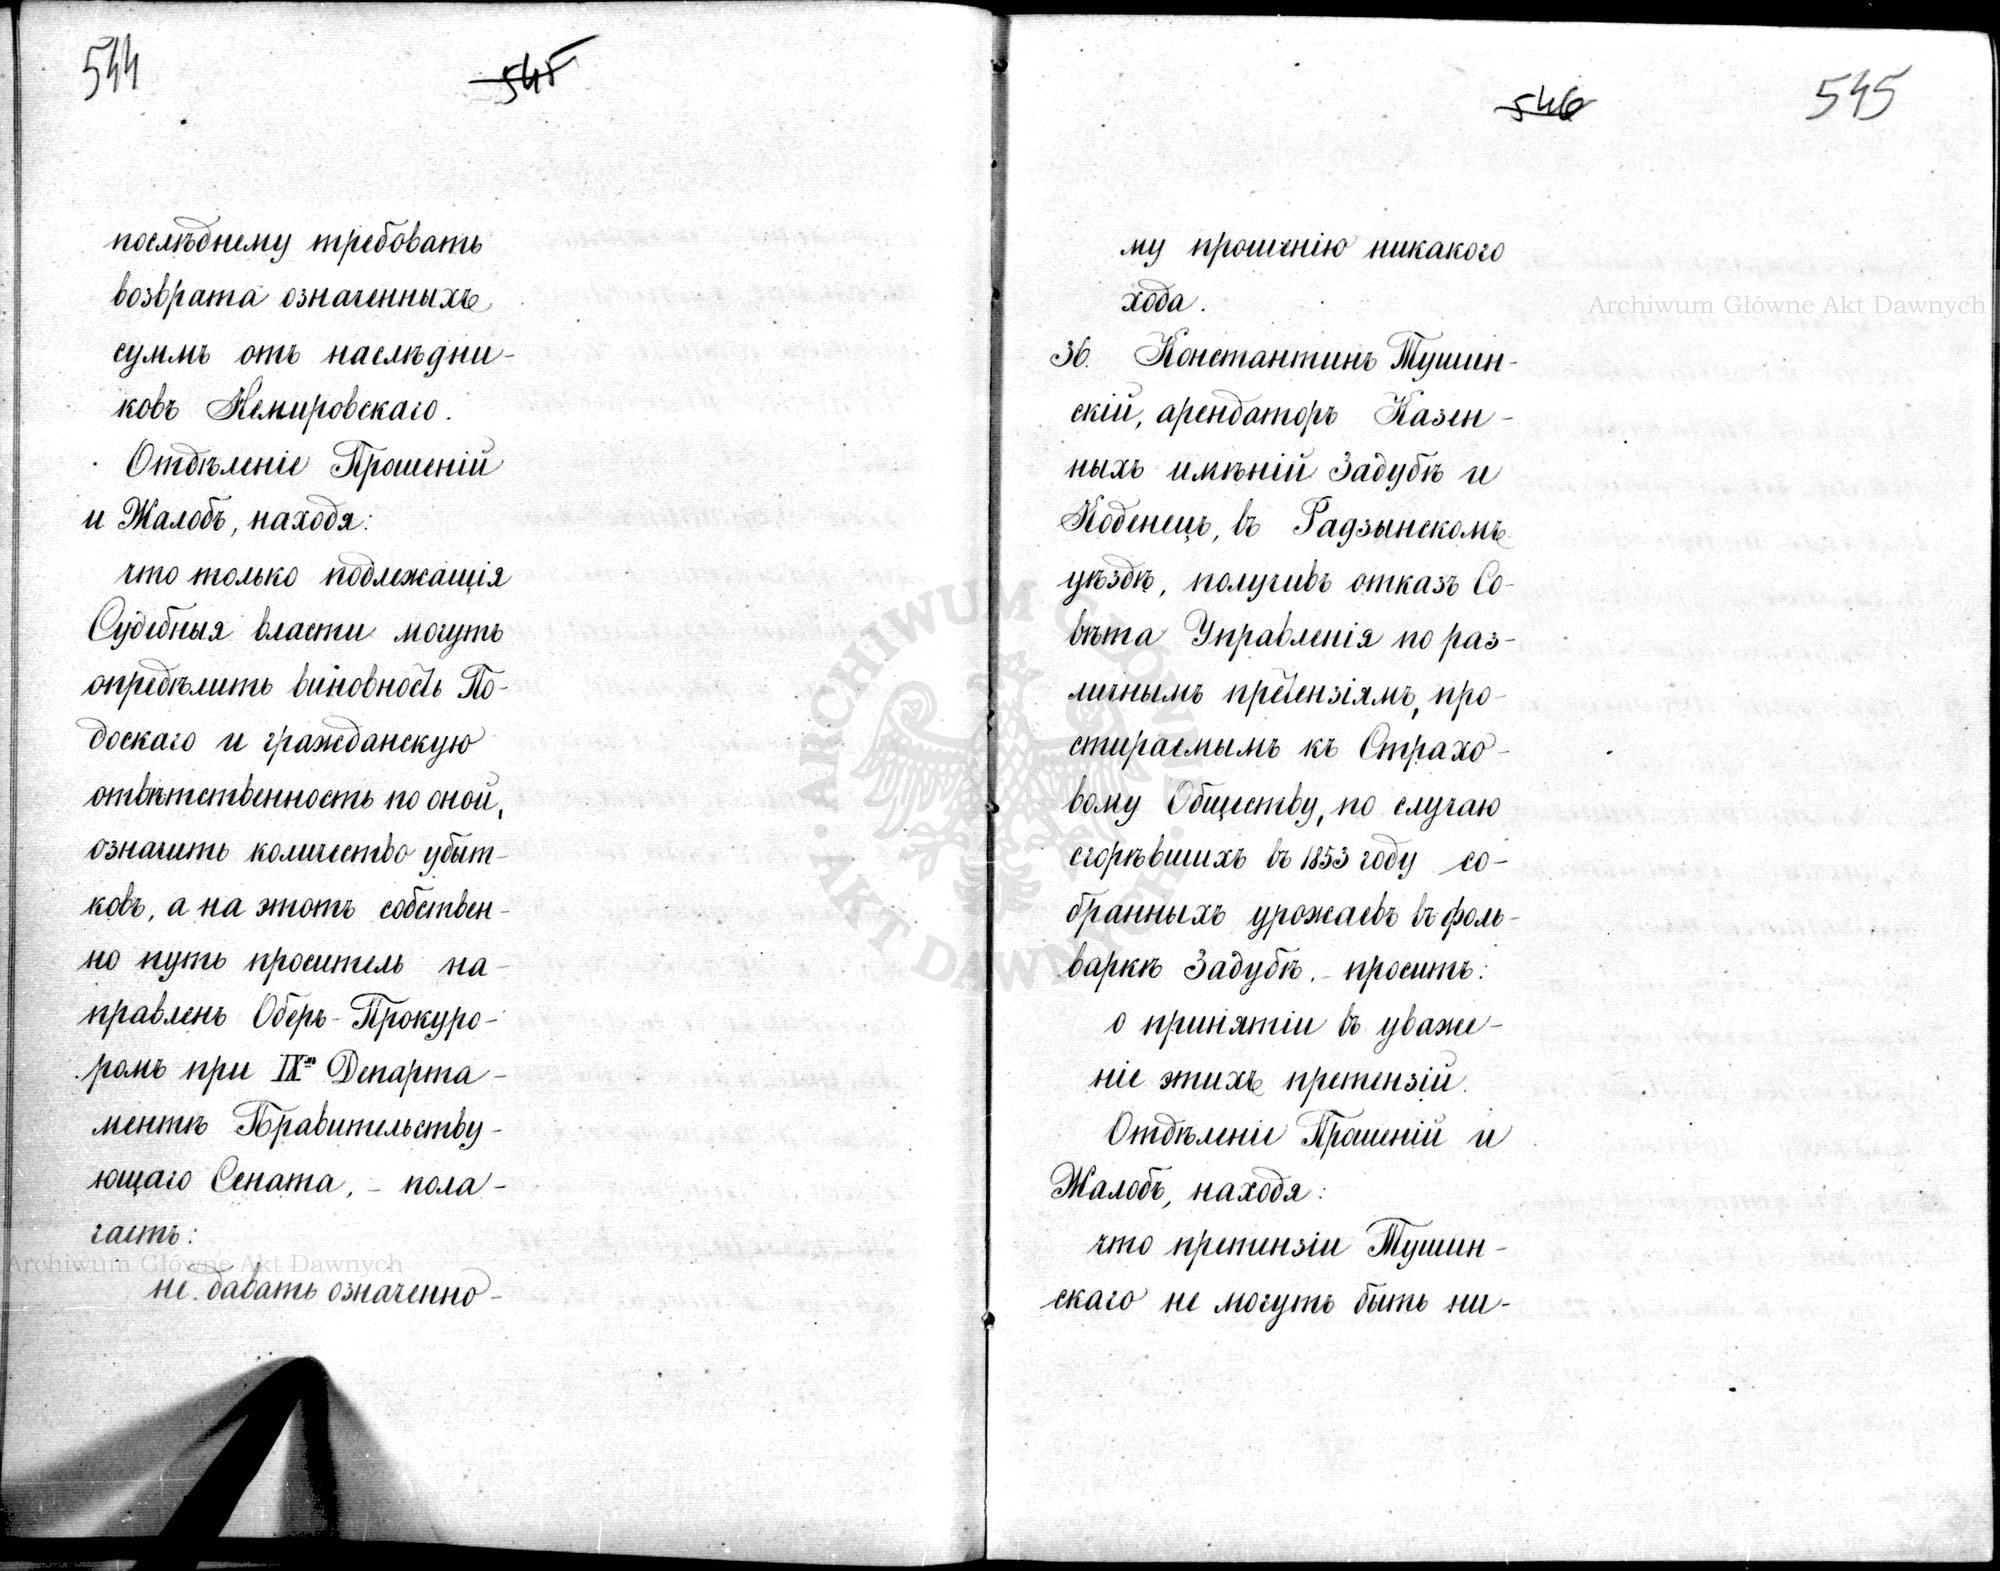 544
545
послѣднему требовать
возврата означенныхъ
суммъ отъ наслѣдни-
ковъ Немировскаго.
Отдѣленіе Прошеній
и Жалобъ, находя:
что только подлежащія
Судебныя власти могутъ
опредѣлить виновность По-
доскаго и гражданскую
отвѣтственность по оной,
означить количество убыт-
ковъ, а на этотъ собствен-
но путь проситель на-
правленъ Оберъ-Прокуро-
ромъ при IXмъ Департа-
ментѣ Правительству-
ющаго Сената, - пола-
гаетъ:
не давать означенно-
Archiwum Główne Akt Dawnych
546
545
му прошенію никакого
хода.
Archiwum Główne Akt Dawnych
36. Константинъ Тушин-
скій, арендаторъ Казен-
ныхъ имѣній Задубѣ и
Коденецъ, въ Радзынскомъ
уѣздѣ, получивъ отказъ Со-
вѣта Управленія по раз-
личнымъ претензіямъ, про-
стираемымъ къ Страхо-
вому Обществу, по случаю
сгорѣвшихъ въ 1853 году со-
бранныхъ урожаевъ въ фоль-
варкѣ Задубѣ, - проситъ:
о принятіи въ уваже-
ніе этихъ претензій.
Отдѣленіе Прошеній и
Жалобъ, находя:
что претензіи Тушин-
скаго не могутъ быть ни-
ARCHIWUM GŁÓWNE · AKT DAWNYCH ·